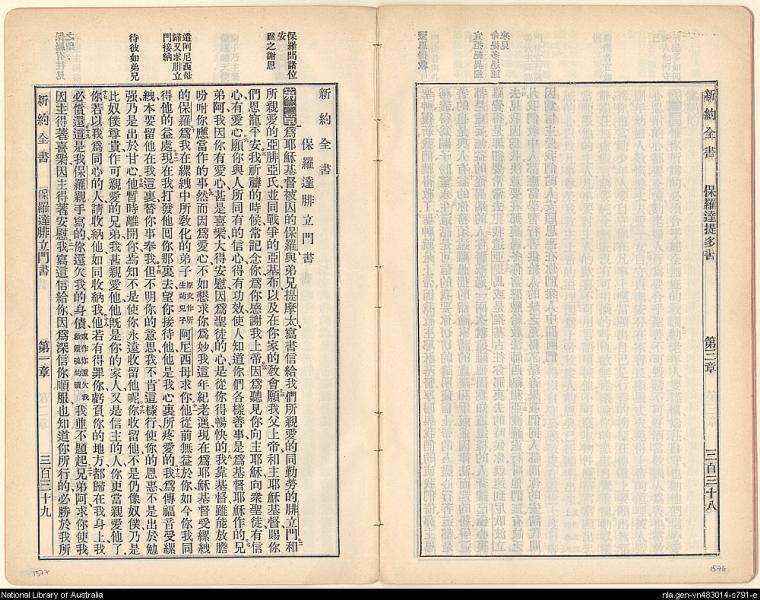 新約全書 保羅達提多書 第三章 三百三十八
保羅問諸位安
感之謝恩
新約全書
保羅達腓立門書
第一章爲耶穌基督被囚的保羅與弟兄提摩太寫書信給我們所親愛的同勤勞的腓立門和
所親愛的亞腓亞氏並同戰爭的亞基布以及在你家的教會願我父上帝和主耶穌基督賜你
們恩寵平安我祈禱的時候常記念你爲你感謝我上帝因爲聽見你向主耶穌向衆聖徒有信
心有愛心願你與人所同有的信心得有功效使人知道你們各樣善事是爲基督耶穌作的兄
弟阿我因你有愛心甚是喜樂大得安慰因爲聖徒的心是從你得暢快的我靠基督雖能放膽
吩咐你應當作的事然而因爲愛心不如懇求你爲妙我這年紀老邁現在爲耶穌基督受縲絏
遣阿尼西母歸又求腓立門接納
的保羅爲我在縲絏中所敎化的弟子原文作所生的兒子阿尼西母求你他從前無益於你如今你我同
得他的益處現在我打發他回你那裏去望你接待他他是我心裏所疼愛的我爲傳福音受縲
絏本要留他在我這裏替你事奉我但不明你的意思我不肯這樣行使你的恩惠不是出於勉
待彼如弟兄
強乃是出於甘心他暫時離開你焉知不是使你永遠收留他呢你收留他不是仍像奴僕乃是
比奴僕尊貴作可親愛的兄弟我甚親愛他他旣是你的家人又是信主的人你更當親愛他了
你若以我爲同心的人請收納他如同收納我他若有得罪你虧負你的地方都歸在我身上我
必償還這是我保羅親手寫的你還欠我的身債我也不題起兄弟阿求你使我
因主得著喜樂因主得著安慰我寫這信給你因爲深信你順服也知道你所行的必勝於我所
新約全書 保羅達腓立門書 第一章 三百三十九
1577
1576
National Library of Australia
nla.gen-vn483014-s791-e